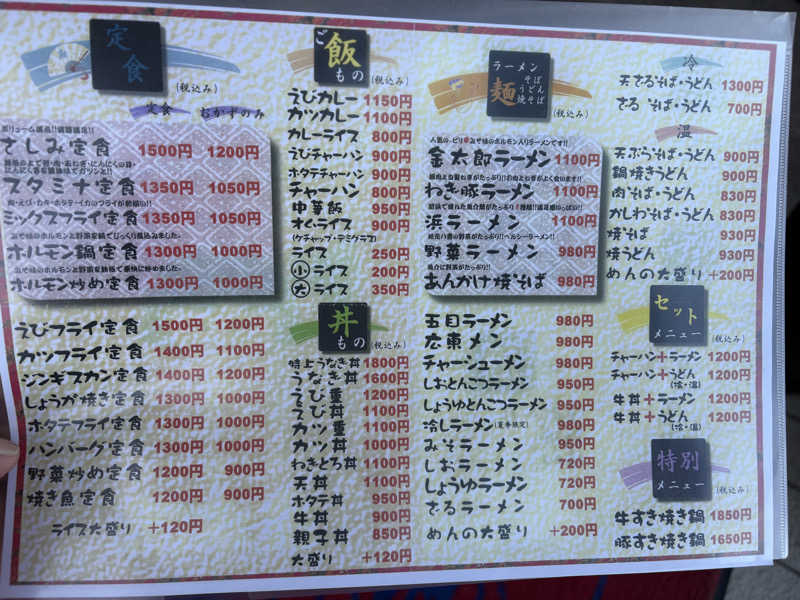 定食
(税込み)
定食 おかずのみ
ボリューム満点!!満腹満足!!
さしみ定食 1500円 1200円
スタミナ定食 1350円 1050円
ミックスフライ定食 1350円 1050円
みそ味のホルモンと野菜を鉄鍋でじっくり煮込みました。
ホルモン鍋定食 1300円 1000円
みそ味のホルモンと野菜を鉄板で豪快に炒めました。
ホルモン炒め定食 1300円 1000円
えびフライ定食 1500円 1200円
カツフライ定食 1400円 1100円
ジンギスカン定食 1400円 1200円
しょうが焼き定食 1300円 1000円
ホタテフライ定食 1300円 1000円
ハンバーグ定食 1300円 1000円
野菜炒め定食 1200円 900円
焼き魚定食 1200円 900円
ライス大盛り +120円
ご飯もの
(税込み)
えびカレー 1150円
カツカレー 1100円
カレーライス 800円
えびチャーハン 900円
ホタテチャーハン 900円
チャーハン 800円
中華飯 950円
オムライス 900円
(ケチャップ・デミグラス)
ライス 250円
小ライス 200円
大ライス 350円
丼もの
(税込み)
特上うなぎ丼 1800円
うなぎ丼 1600円
えび重 1200円
えび丼 1100円
カツ重 1100円
カツ丼 1000円
ねぎとろ丼 1100円
天丼 1100円
ホタテ丼 950円
牛丼 900円
親子丼 850円
大盛り +120円
ラーメン
麺
そば
うどん
焼そば
(税込み)
人気の、ピリ辛みそ味のホルモン入りラーメンです!!
金太郎ラーメン 1100円
ねぎ豚ラーメン 1100円
浜ラーメン 1100円
地元八雲の野菜がたっぷり!!ヘルシーラーメン!!
野菜ラーメン 980円
魚介に野菜がたっぷり!!
あんかけ焼そば 980円
五目ラーメン 980円
広東メン 980円
チャーシューメン 980円
しおとんこつラーメン 950円
しょうゆとんこつラーメン 950円
冷しラーメン(夏季限定) 980円
みそラーメン 950円
しおラーメン 720円
しょうゆラーメン 720円
ざるラーメン 700円
めんの大盛り +200円
冷
天ざるそば・うどん 1300円
ざる そば・うどん 700円
温
天ぷらそば・うどん 900円
鍋焼きうどん 900円
肉そば・うどん 830円
かしわそば・うどん 830円
焼そば 930円
焼うどん 930円
めんの大盛り +200円
セット
メニュー
(税込み)
チャーハン+ラーメン 1200円
チャーハン+うどん 1200円
(冷・温)
牛丼+ラーメン 1200円
牛丼+うどん 1200円
(冷・温)
特別
メニュー
(税込み)
牛すき焼き鍋 1850円
豚すき焼き鍋 1650円